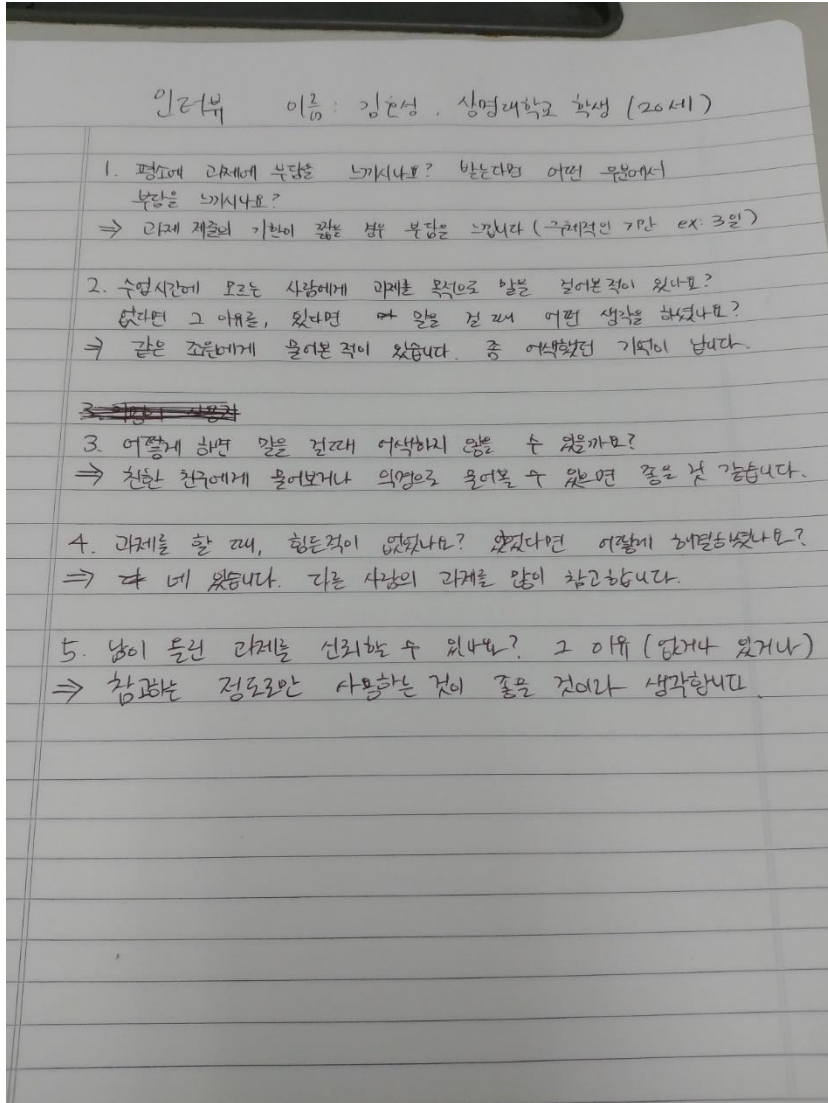 인터뷰 이름: 김현성. 상명대학교 학생 (20세)
1. 평소에 과제에 부담을 느끼시나요? 받는다면 어떤 부분에서
부담을 느끼시나요?
⇒ 과제 제출의 기한이 짧을 경우 부담을 느낍니다 (구체적인 기간 ex: 3일)
2. 수업시간에 모르는 사람에게 과제를 목적으로 말을 걸어본적이 있나요?
없다면 그 이유를, 있다면 말을 걸 때 어떤 생각을 하셨나요?
⇒ 같은 조원에게 물어본 적이 있습니다. 좀 어색했던 기억이 납니다.
3. 어떻게 하면 말을 걸때 어색하지 않을 수 있을까요?
⇒ 친한 친구에게 물어보거나 익명으로 물어볼 수 있으면 좋을 것 같습니다.
4. 과제를 할 때, 힘든적이 없었나요? 있었다면 어떻게 해결하셨나요?
⇒ 네 있습니다. 다른 사람의 과제를 많이 참고합니다.
5. 남이 올린 과제를 신뢰할 수 있나요? 그 이유 (없거나 있거나)
⇒ 참고하는 정도로만 사용하는 것이 좋을 것이라 생각합니다.